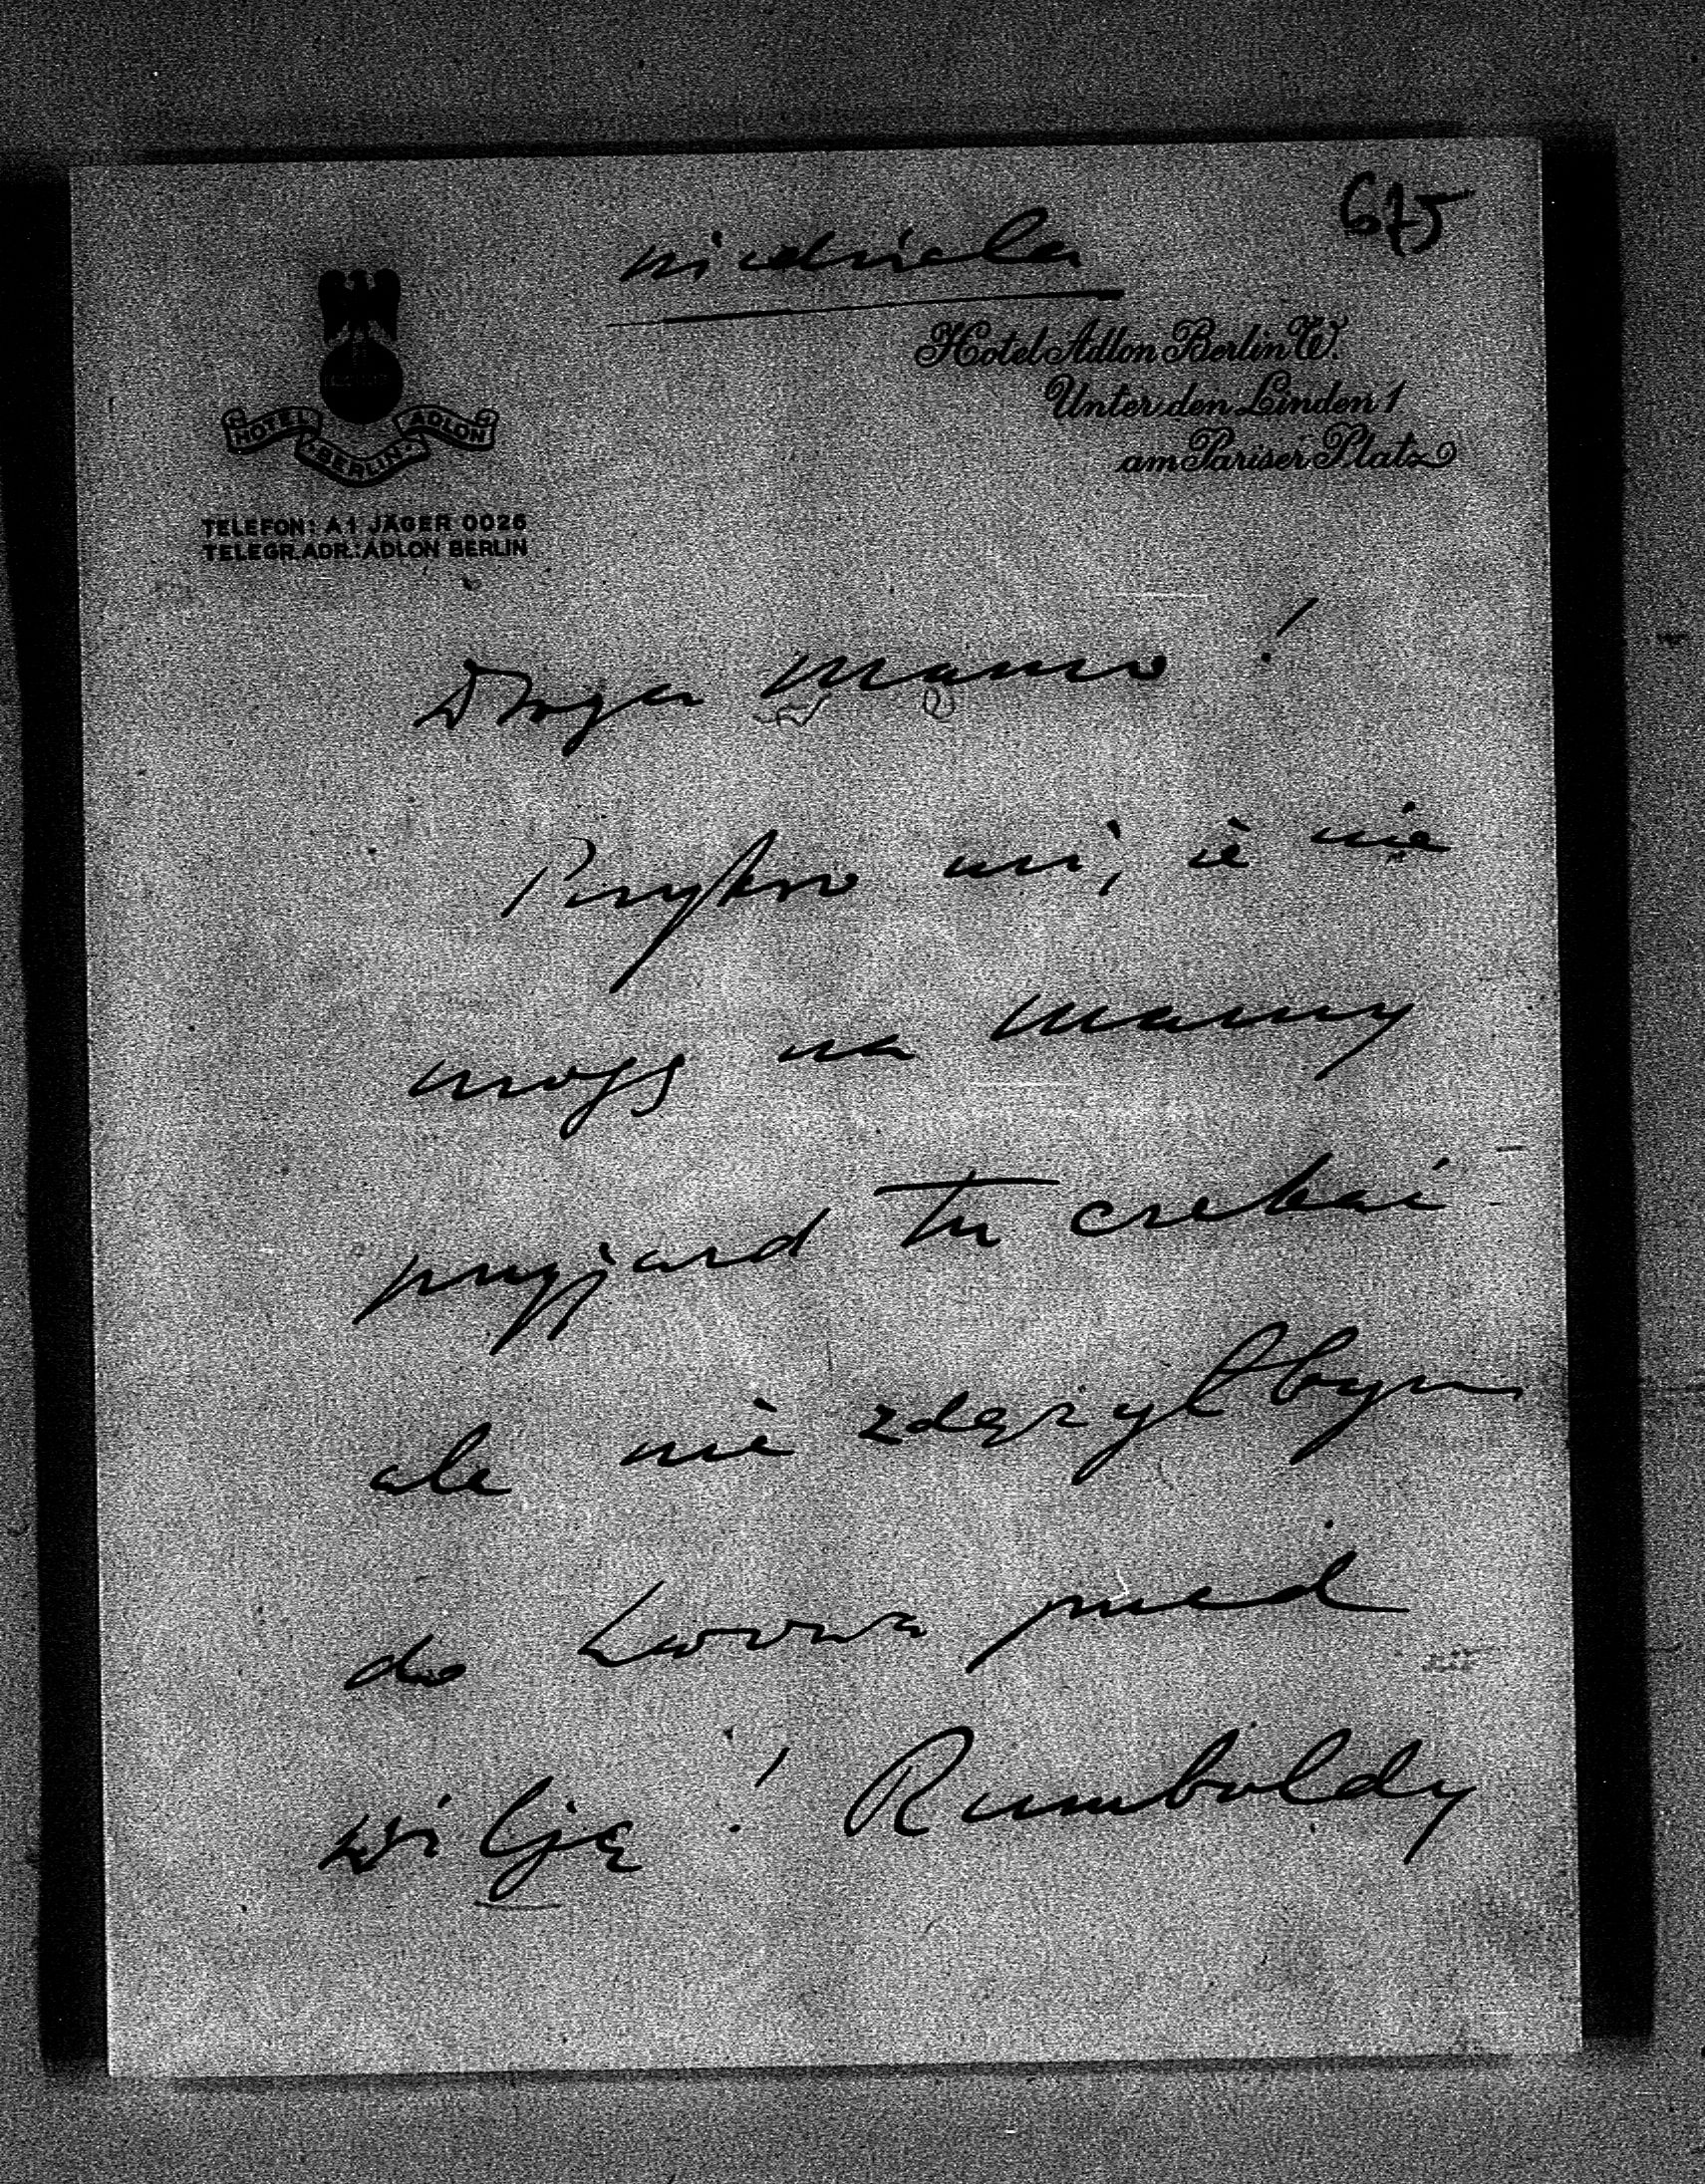 675
niedziela
Hotel Adlon Berlin W.
Unter den Linden 1
am Pariser Platz
HOTEL ADLON
BERLIN
TELEFON: A1 JÄGER 0026
TELEGR.ADR.: ADLON BERLIN
Droga Mamo!
Przykro mi, że nie
mogę na Mamy
przyjazd tu czekać
ale nie zdążyłbym
do Lwowa przed
wilją! Rumboldy